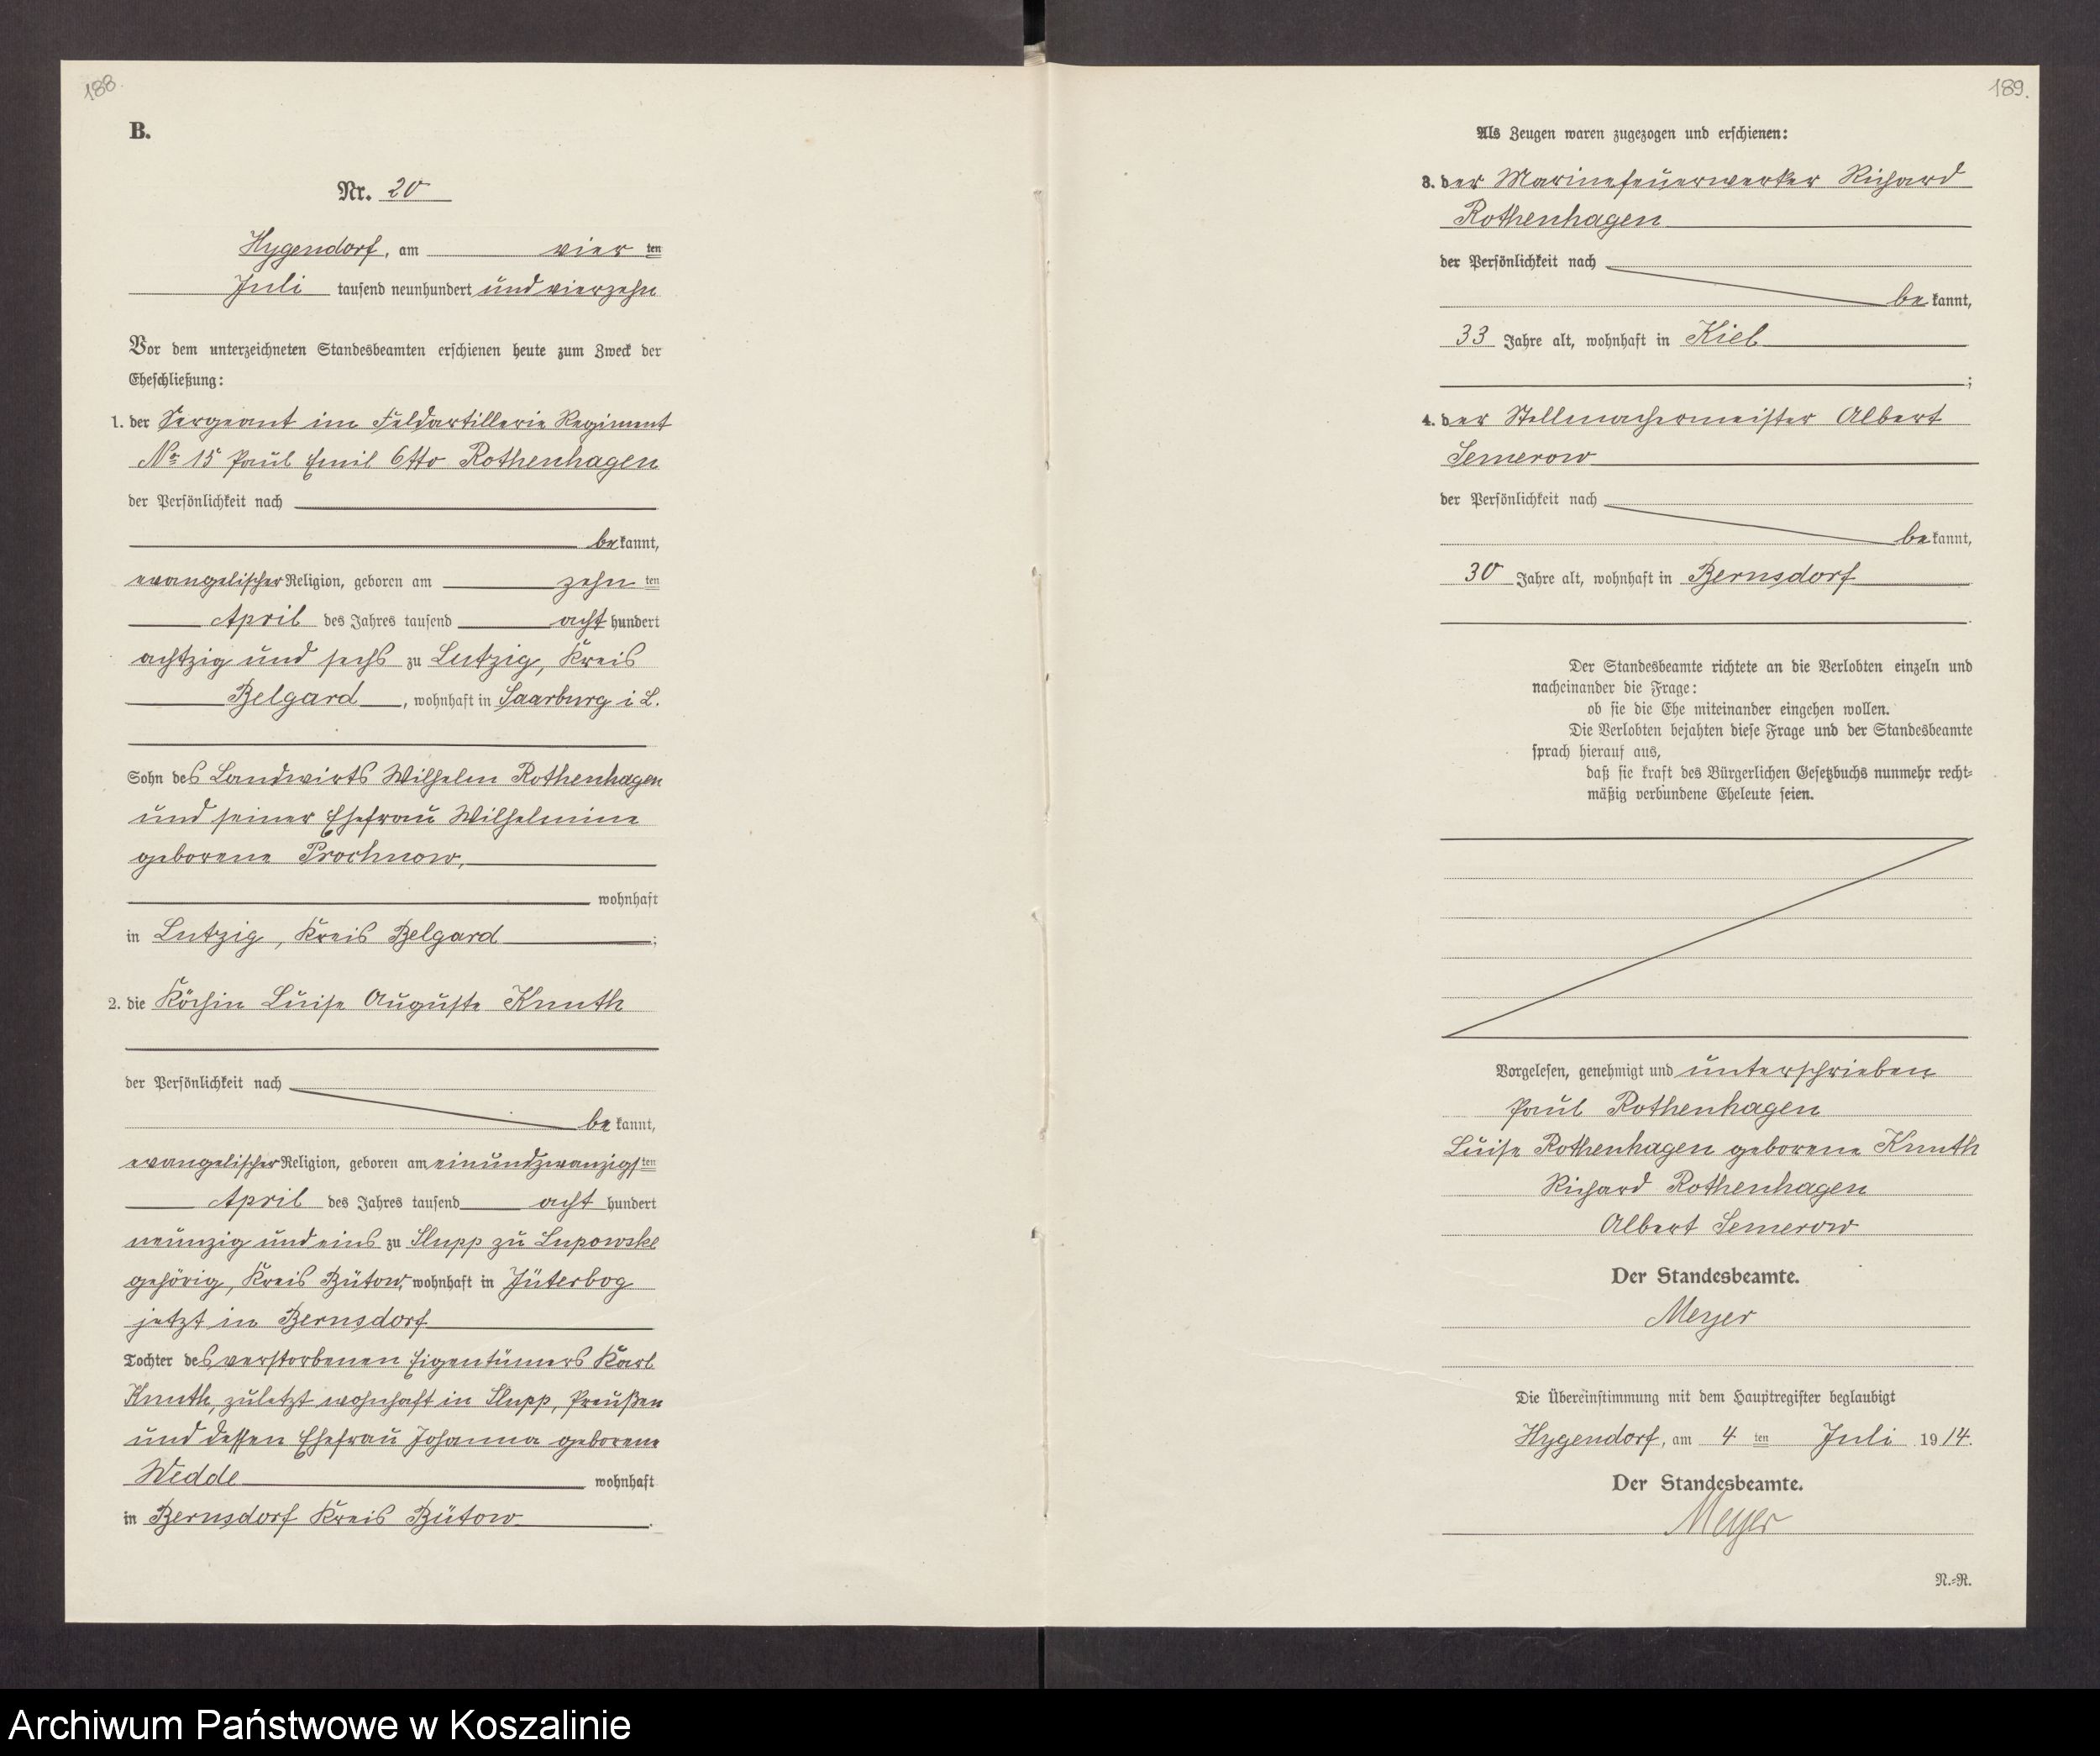 188.
B.
Nr. 20
Hygendorf, am vier ten
Juli tausend neunhundert und vierzehn
Vor dem unterzeichneten Standesbeamten erschienen heute zum Zweck der
Eheschließung:
1. der Sergeant im Feldartillerie Regiment
No 15 Paul Emil Otto Rothenhagen
der Persönlichkeit nach
be kannt,
evangelischer Religion, geboren am zehn ten
April des Jahres tausend acht hundert
achtzig und sechs zu Lutzig, Kreis
Belgard, wohnhaft in Saarburg i L.
Sohn des Landwirts Wilhelm Rothenhagen
und seiner Ehefrau Wilhelmine
geborene Prochnow,
wohnhaft
in Lutzig, Kreis Belgard ;
2. die Köchin Luise Auguste Knuth
der Persönlichkeit nach
be kannt,
evangelischer Religion, geboren am einundzwanzigs ten
April des Jahres tausend acht hundert
neunzig und eins zu Slupp zu Lupowske
gehörig, Kreis Bütow, wohnhaft in Jüterbog
jetzt in Bernsdorf
Tochter des verstorbenen Eigentümers Karl
Knuth, zuletzt wohnhaft in Slupp, Preußen
und dessen Ehefrau Johanna geborene
Wedde wohnhaft
in Bernsdorf Kreis Bütow .
189.
Als Zeugen waren zugezogen und erschienen:
3. der Marinefeuerwerker Richard
Rothenhagen
der Persönlichkeit nach
be kannt,
33 Jahre alt, wohnhaft in Kiel
;
4. der Stellmachermeister Albert
Semerow
der Persönlichkeit nach
be kannt,
30 Jahre alt, wohnhaft in Bernsdorf
.
Der Standesbeamte richtete an die Verlobten einzeln und
nacheinander die Frage:
ob sie die Ehe miteinander eingehen wollen.
Die Verlobten bejahten diese Frage und der Standesbeamte
sprach hierauf aus,
daß sie kraft des Bürgerlichen Gesetzbuchs nunmehr recht-
mäßig verbundene Eheleute seien.
Vorgelesen, genehmigt und unterschrieben
Paul Rothenhagen
Luise Rothenhagen geborene Knuth
Richard Rothenhagen
Albert Semerow
Der Standesbeamte.
Meyer
Die Übereinstimmung mit dem Hauptregister beglaubigt
Hygendorf, am 4 ten Juli 19 14.
Der Standesbeamte.
Meyer
N.-R.
Archiwum Państwowe w Koszalinie